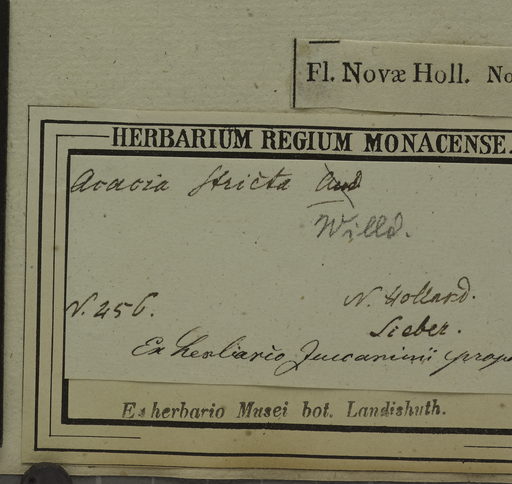 Fl. Novæ Holl. No
HERBARIUM REGIUM MONACENSE.
Acacia stricta And
Willd.
N. 456. N. Holland.
Sieber.
Ex herbario Zuccarinii prop
Ex herbario Musei bot. Landishuth.